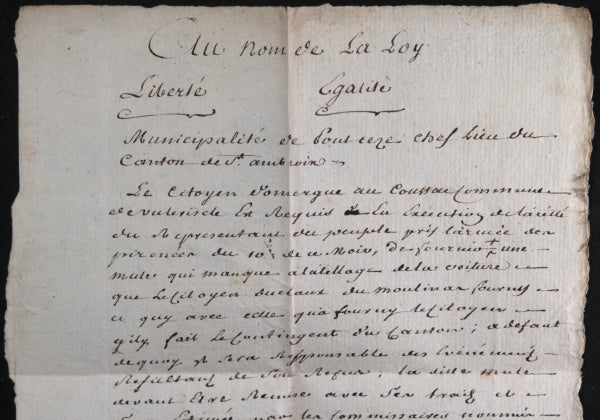 Au nom de La Loy
Liberté Egalité
Municipalité de Pontceze chef Lieu du
Canton de St. ambroix
Le Citoyen domergue au Coussac Commune
est Requis En Execution de larété
du Representant du peuple prés larmée des
pirenées du 10e. de ce Mois, De fournir une
mule qui manque à latellage de la voiture
que le Citoyen du moulinas fourny
ce quy avec celle qu'a fourny le Citoyen
fait le Contingent du Canton; a defaut
de quoy il sera Responsable des Evénements
Resultant de son Refus; la dite mule
devant Etre Remise avec Ses traits et
par les Commissaires nommés